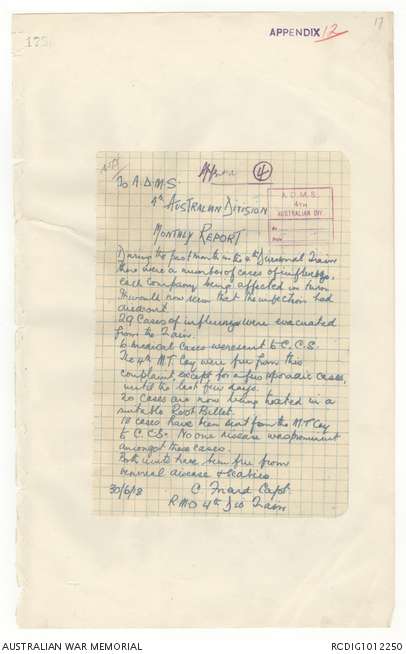 17
APPENDIX 12
175
Appendix 4
To A.D.M.S.
4th AUSTRALIAN DIVISION
A.D.M.S.
4TH
AUSTRALIAN DIV.
MONTHLY REPORT
During the past month in the 4th Divisional Train
there were a number of cases of influenza,
each company being affected in turn
It would now seem that the infection had
died out.
29 Cases of influenza were evacuated
from the Train.
6 medical cases were sent to C.C.S.
The 4th M.T. Coy were free from this
complaint except for a few sporadic cases,
until the last few days.
20 cases are now being treated in a
suitable Rest Billet.
18 cases have been sent from the M.T Coy
to C.C.S. No one disease was prominent
amongst these cases.
Both units have been free from
venereal disease & scabies
30/6/18 C Capt.
RMO 4th Div Train
AUSTRALIAN WAR MEMORIAL
RCDIG1012250